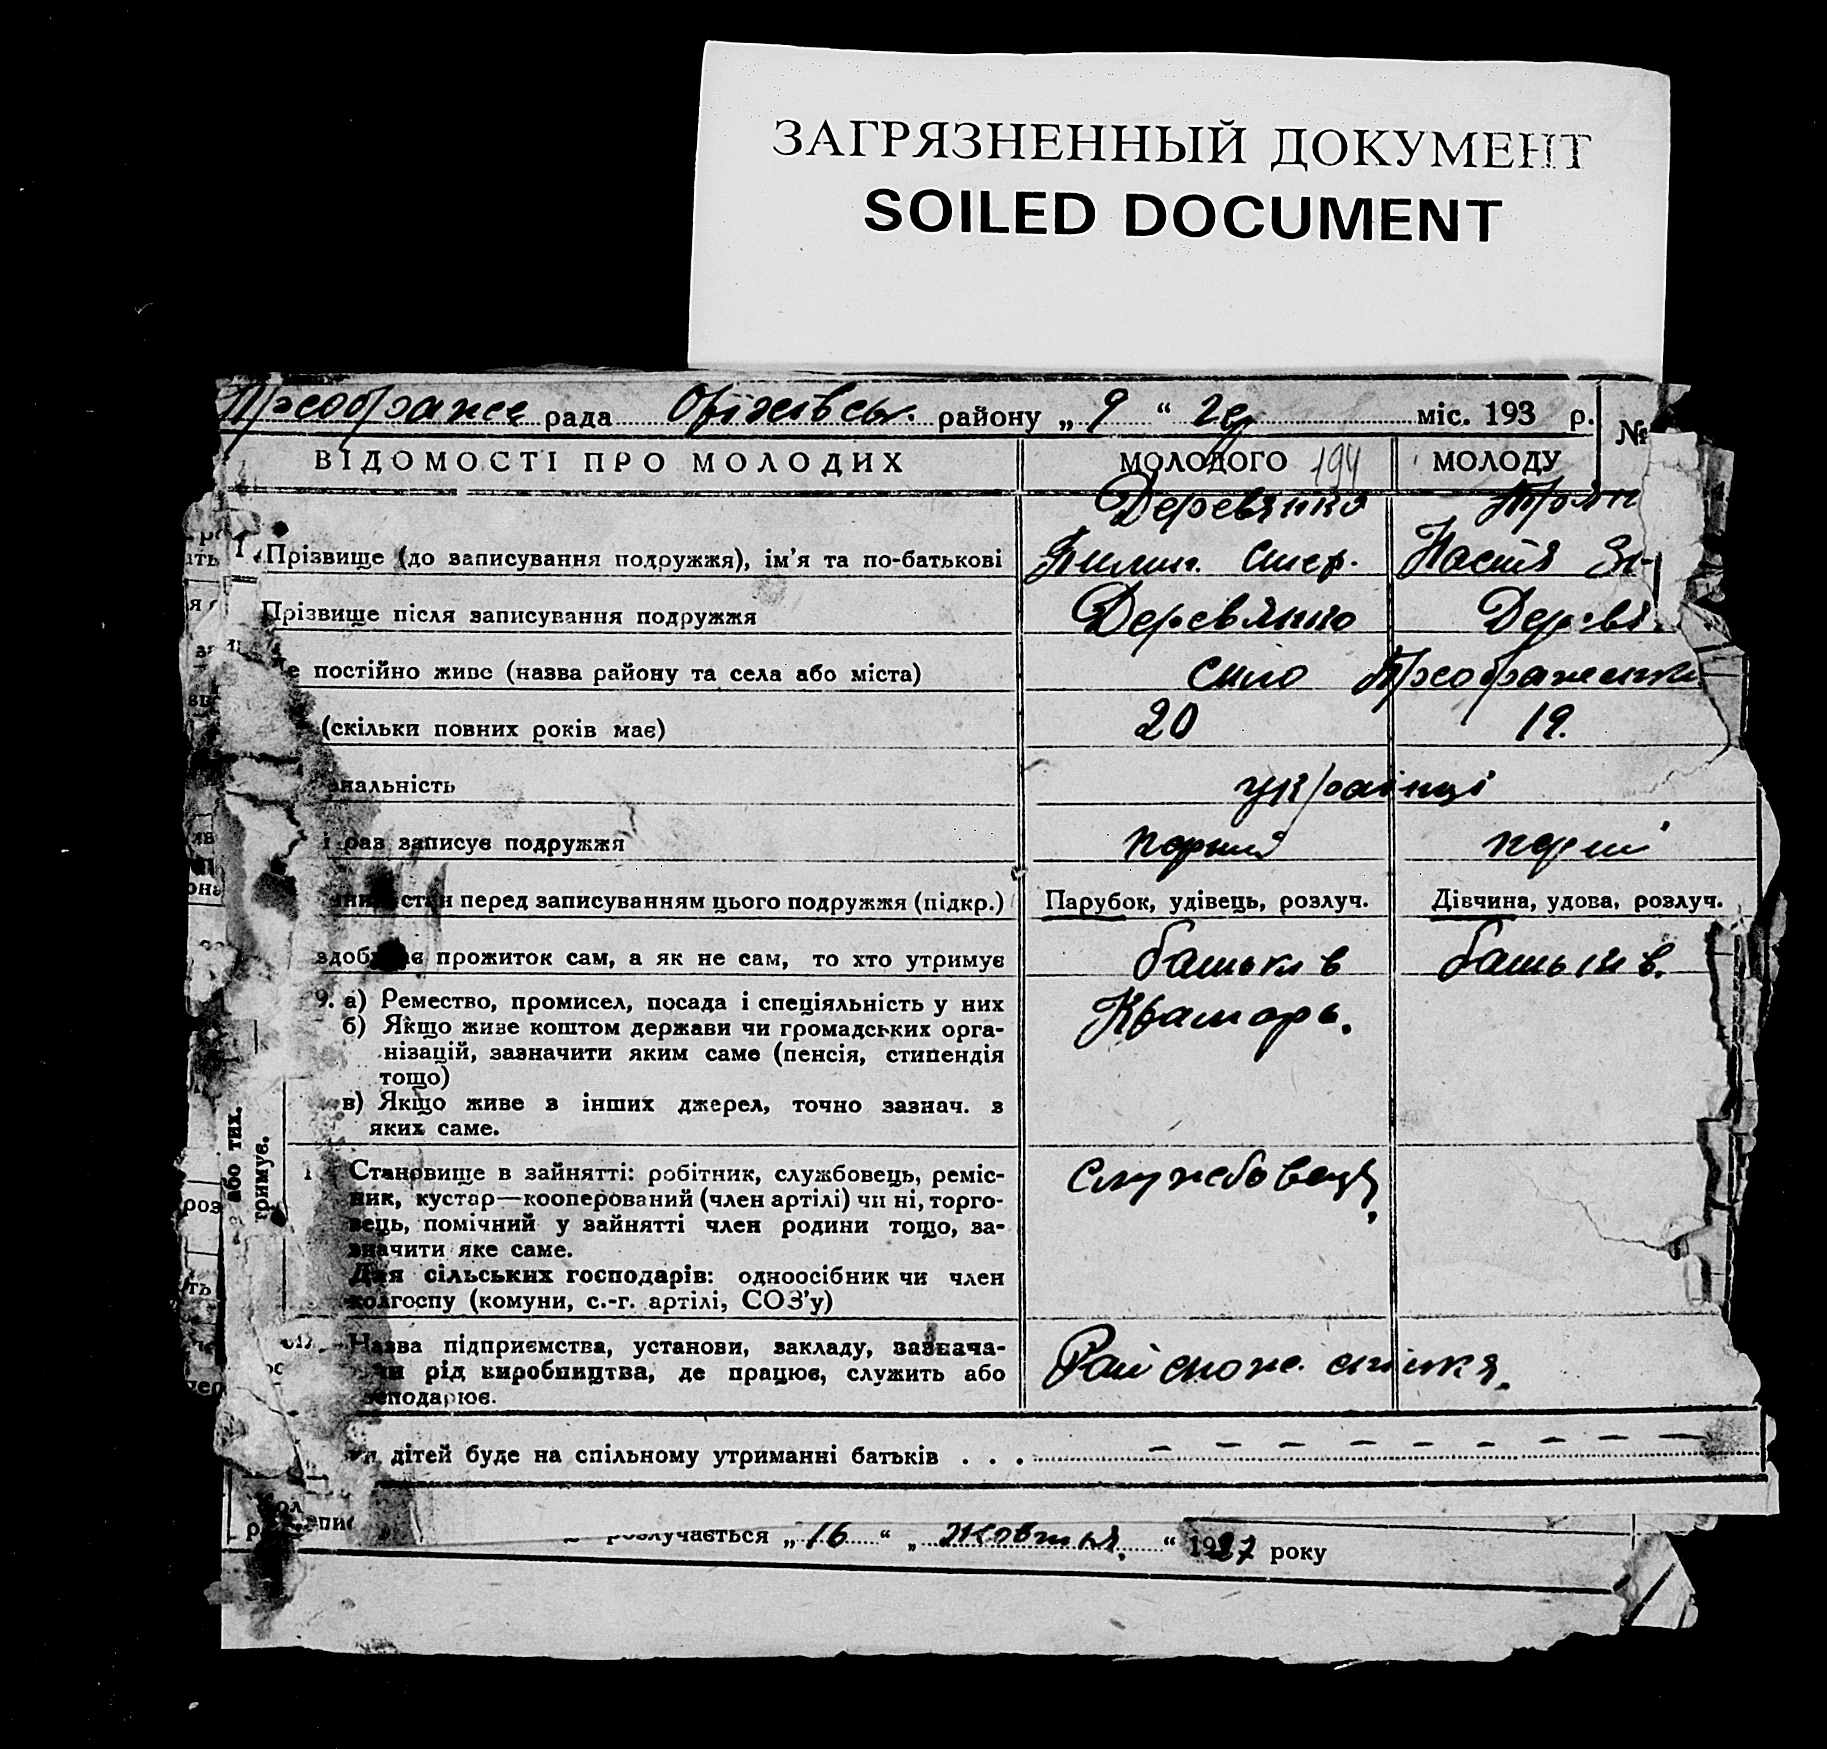 ЗАГРЯЗНЕННЫЙ ДОКУМЕНТ
SOILED DOCUMENT
Преображен рада Оріхівськ. району „ 9 “ міс. 193 р. №
ВІДОМОСТІ ПРО МОЛОДИХ МОЛОДОГО 194 МОЛОДУ
Деревянко
1. Прізвище (до записування подружжя), ім’я та по-батькові Пилип. Настя
Прізвище після записування подружжя Деревянко Деревя
е постійно живе (назва району та села або міста) село Преображенка
(скільки повних років має) 20 19.
нальність українці
і раз записує подружжя перший перши
стан перед записуванням цього подружжя (підкр.) Парубок, удівець, розлуч. Дівчина, удова, розлуч.
здобуває прожиток сам, а як не сам, то хто утримує батьків батьків.
9. а) Ремество, промисел, посада і спеціяльність у них Крамарь.
б) Якщо живе коштом держави чи громадських орга-
нізацій, зазначити яким саме (пенсія, стипендія
тощо)
в) Якщо живе з інших джерел, точно зазнач. з
яких саме.
Становище в зайнятті: робітник, службовець, реміс- службовець,
ник, кустар—кооперований (член артілі) чи ні, торго-
вець, помічний у зайнятті член родини тощо, за-
значити яке саме.
Для сільських господарів: одноосібник чи член
колгоспу (комуни, с.-г. артілі, СОЗ’у)
Назва підприємства, установи, закладу, зазнача- Рай спож. спілка.
чи рід виробництва, де працює, служить або
господарює.
дітей буде на спільному утриманні батьків . . . — — — — — — — — —
розлучається „ 16 “ „ Жовтня. “ 1937 року
або тих.
тримує.